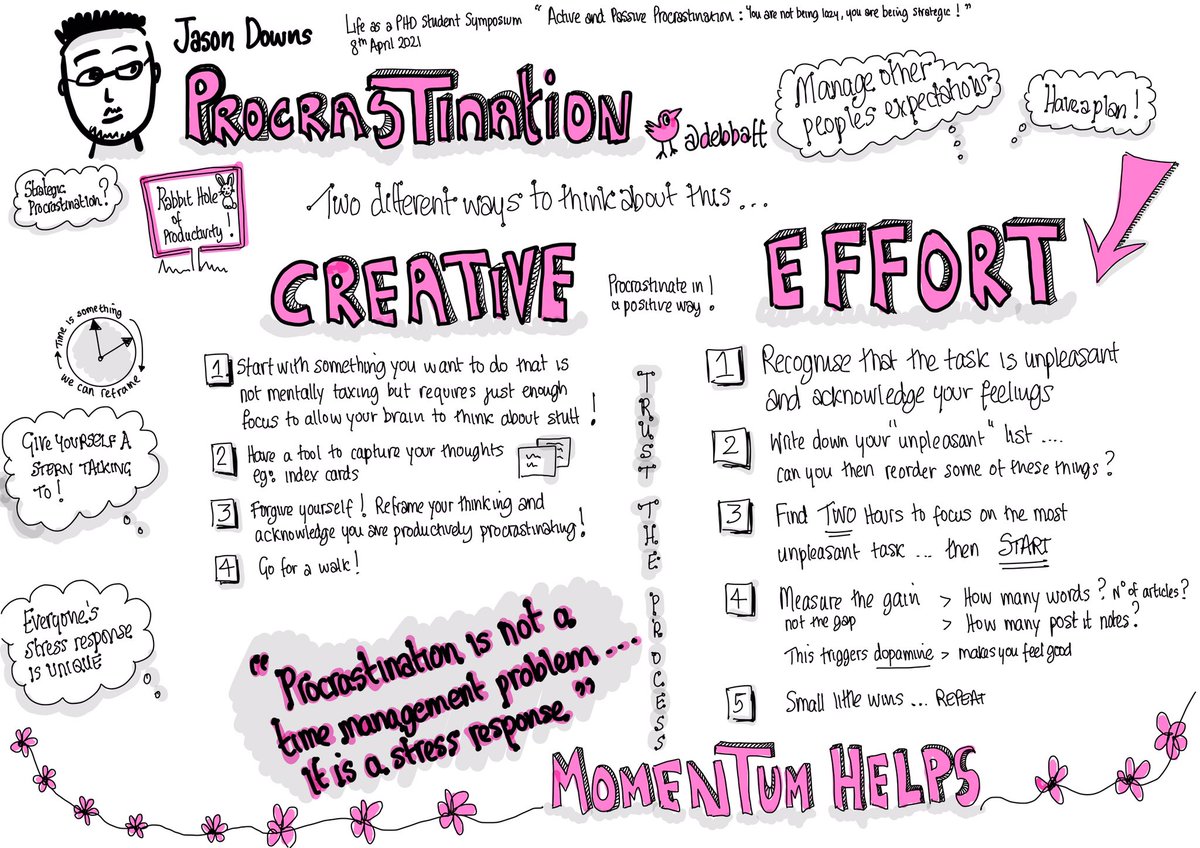 Jason Downs
Life as a PHD Student Symposium
8th April 2021
"Active and Passive Procrastination: You are not being lazy, you are being strategic!"
PROCRASTINATION
@debbaff
Manage other
peoples expectations
Have a plan!
Strategic
Procrastination?
Rabbit Hole
of
Productivity!
Two different ways to think about this ...
CREATIVE
Procrastinate in
a positive way!
EFFORT
Time is something
we can reframe
GIVE YOURSELF A
STERN TALKING
TO!
Everyone's
stress response
is UNIQUE
1 Start with something you want to do that is
not mentally taxing but requires just enough
focus to allow your brain to think about stuff!
2 Have a tool to capture your thoughts
eg: index cards
3 Forgive yourself! Reframe your thinking and
acknowledge you are productively procrastinating!
4 Go for a walk!
"Procrastination is not a
time management problem ...
it is a stress response"
TRUST THE PROCESS
1 Recognise that the task is unpleasant
and acknowledge your feelings
2 Write down your "unpleasant" list ....
can you then reorder some of these things?
3 Find TWO Hours to focus on the most
unpleasant task ... then START
4 Measure the gain > How many words? No of articles?
not the gap > How many post it notes?
This triggers dopamine > makes you feel good
5 Small little wins ... REPEAT
MOMENTUM HELPS